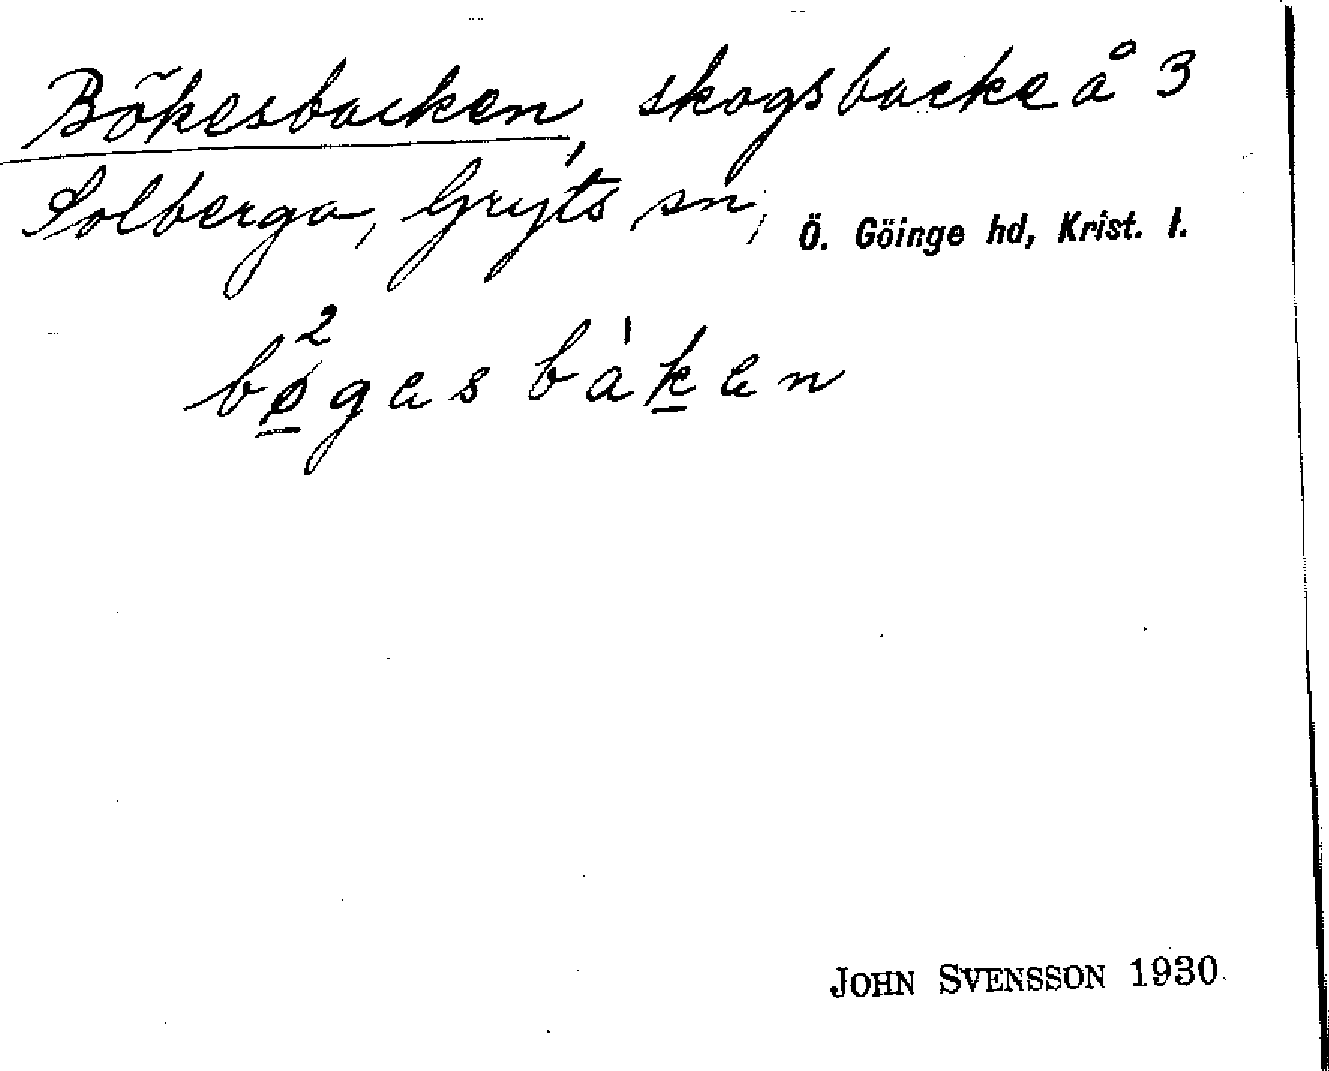 Bökesbacken, skogsbacke å 3
Solberga, Gryts sn, Ö. Göinge hd, Krist. l.
bø²gas bàkan
JOHN SVENSSON 1930